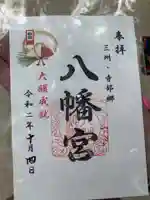 奉拝
三州・寺部郷
八幡宮
八大願成就
令和二年十月四日